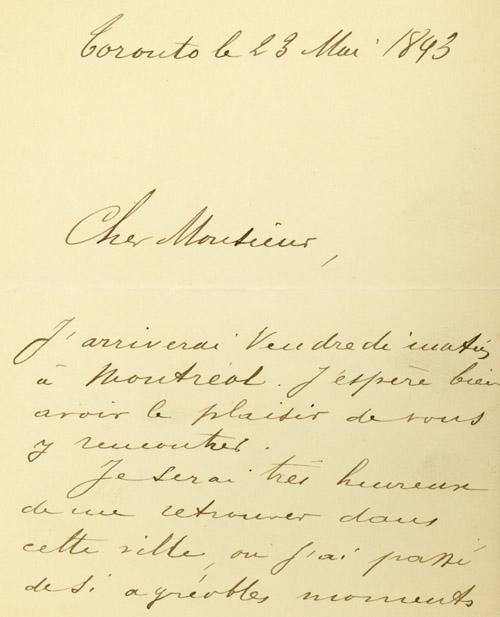 Toronto le 23 Mai 1893
Cher Monsieur,
J'arriverai Vendredi matin
à Montréal. J'espère bien
avoir le plaisir de vous
y rencontrer.
Je serai très heureux
de me retrouver dans
cette ville, où j'ai passé
de si agréables moments